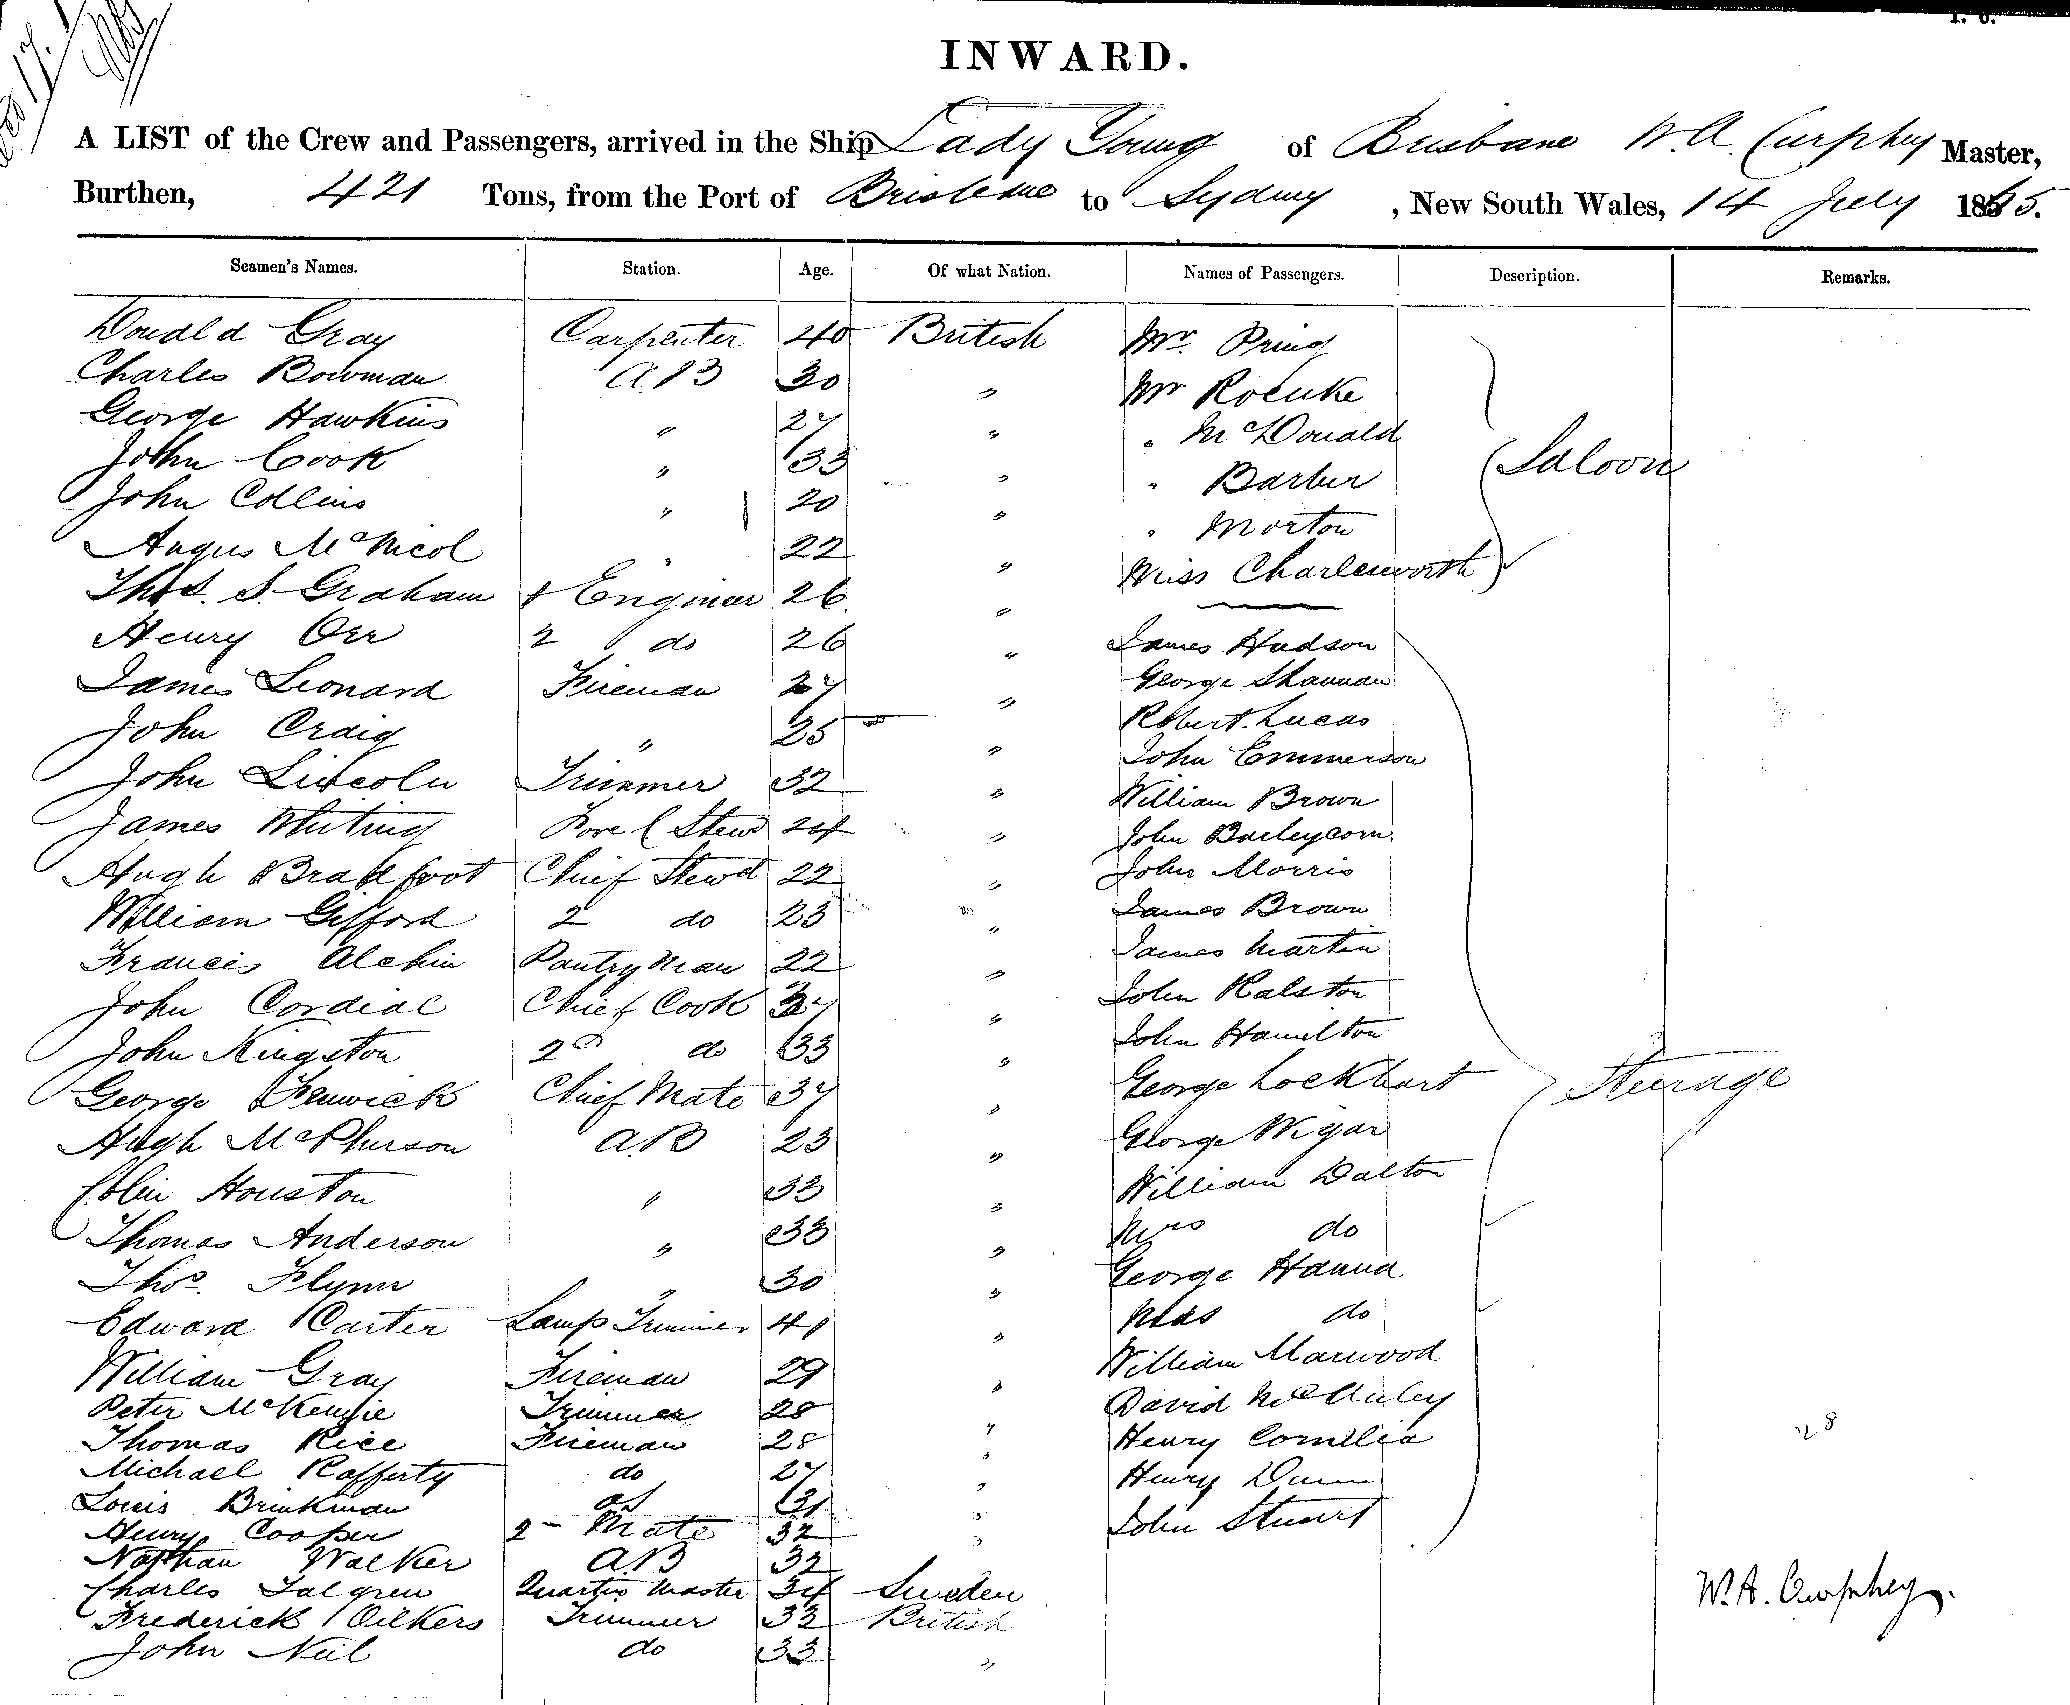 INWARD.
A LIST of the Crew and Passengers, arrived in the Ship Lady Young of Brisbane W. A. Curphey Master,
Burthen, 421 Tons, from the Port of Brisbane to Sydney , New South Wales, 14 July 1865.
Seamen's Names. Station. Age. Of what Nation. Names of Passengers. Description. Remarks.
Donald Gray Carpenter 40 British Mr. Pring
Charles Bowman A B 30 " Mr Roenke
George Hawkins " 27 " " McDonald
John Cook " 33 " " Barber Saloon
John Collins " 20 " " Morton
Angus McNicol " 22 " Miss Charlesworth
Thos. S. Graham 1 Engineer 26 "
Henry Orr 2 do 26 " James Hudson
James Leonard Fireman 27 " George Shannan
John Craig " 25 " Robert Lucas
John Lincoln Trimmer 32 " John Emmerson
James Whiting Fore C Stewd 24 " William Brown
Hugh Bradfoot Chief Stewd 22 " John Barleycorn
William Gifford 2 do 23 " John Morris
Francis Alchin Pantry Man 22 " James Brown
John Cordial Chief Cook 37 " James Martin
John Kingston 2d do 33 " John Ralston
George Fenwick Chief Mate 37 " John Hamilton
Hugh McPherson A.B 23 " George Lockhart Steerage
Colin Houston " 33 " George Wigar
Thomas Anderson " 33 " William Dalton
Thos. Flynn " 30 " Mrs do
Edward Carter Lamp Trimmer 41 " George Hanna
William Gray Fireman 29 " Miss do
Peter McKenzie Trimmer 28 " William Marwood
Thomas Rice Fireman 28 " David McAuley
Michael Rafferty do 27 " Henry Cornelia 28
Louis Brinkman do 31 " Henry Dunn
Henry Cooper 2 Mate 32 " John Stuart
Nathan Walker A.B 32
Charles Talgren Quarter Master 34 Sweden W. A. Curphey.
Frederick Oelkers Trimmer 33 British
John Neil do 33 "